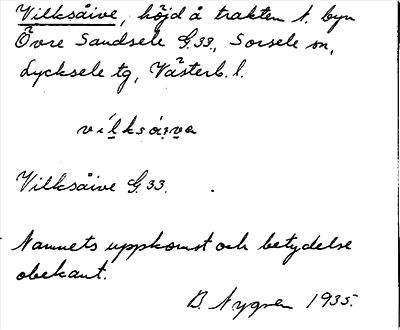 Vilksåive, höjd å trakten t. byn
Övre Sandsele G.33., Sorsele sn,
Lycksele tg, Västerb. l.
vílksá:iva
Vilksåive G.33.
Namnets uppkomst och betydelse
obekant.
B. Nygren 1935.